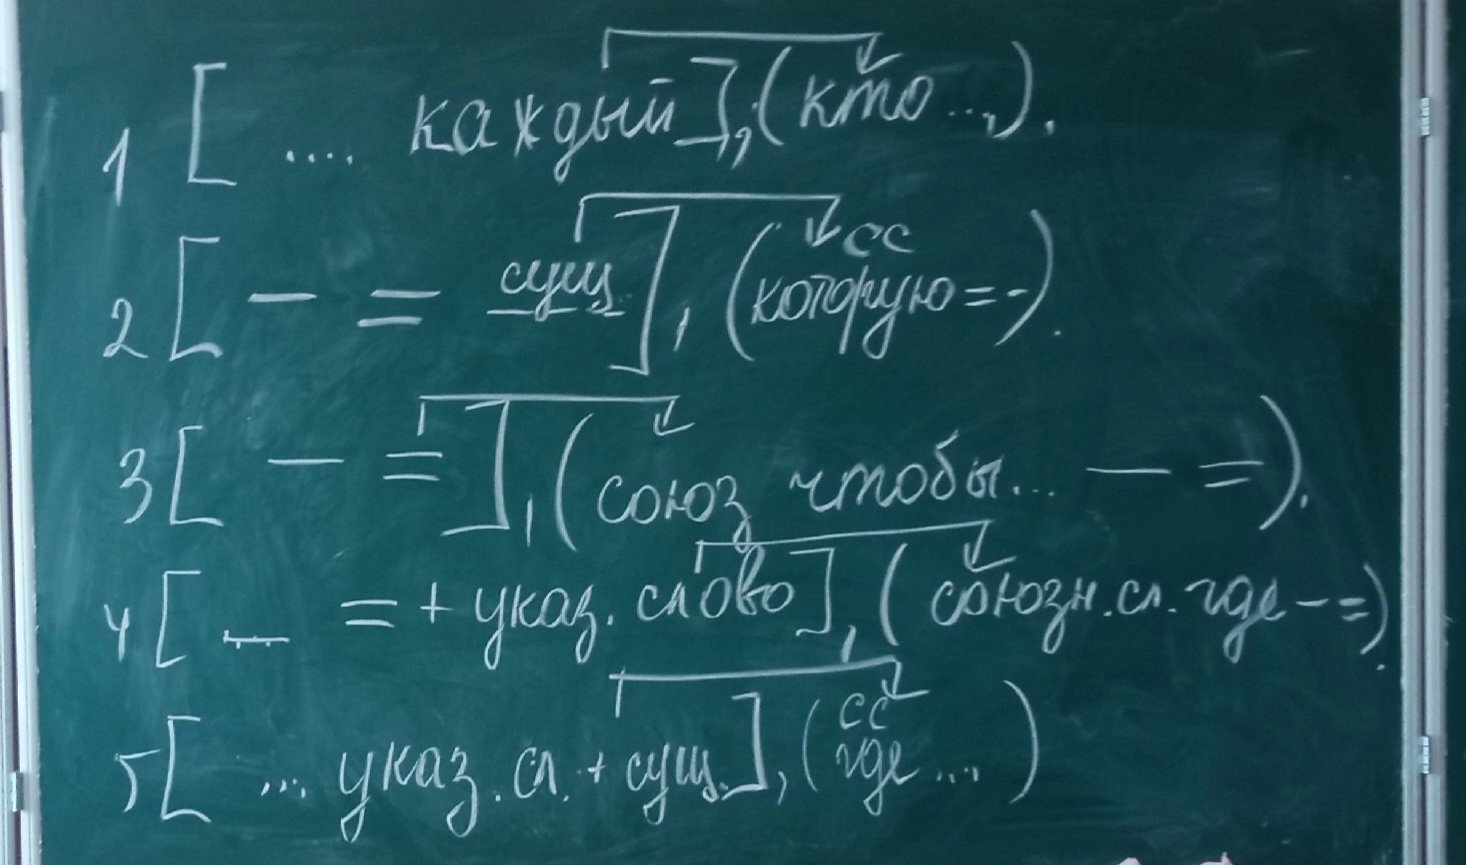 1 [ .... каждый ], (кто ...).
2 [ — = сущ. ], (которую = -).
сс
3 [ — = ], (союз чтобы... — =).
4 [ — = + указ. слово ], (союзн. сл. где - =).
сс
5 [ ... указ. сл. + сущ. ], (где ...)